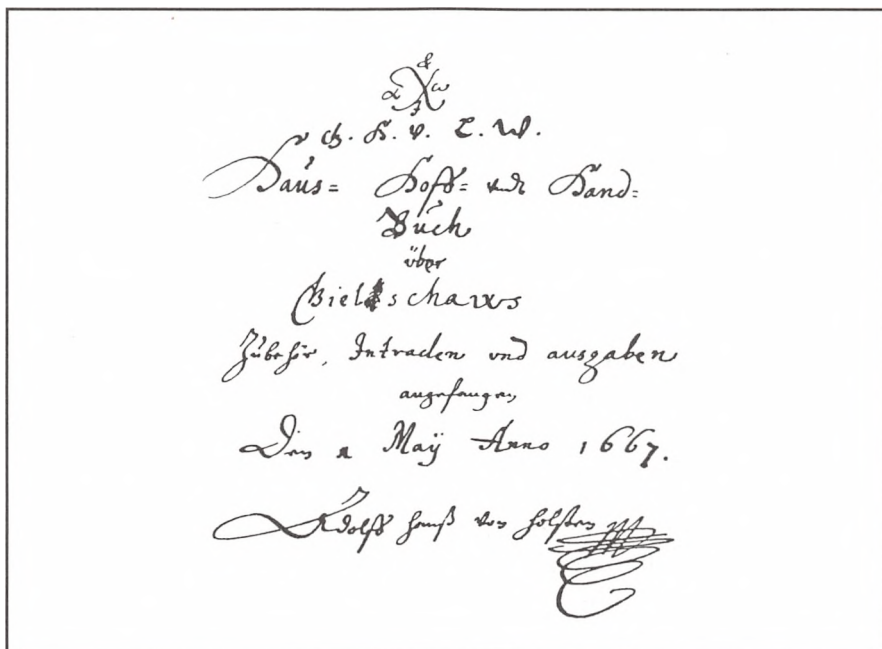 α ω
G. H. v. L. W.
Haus= Hoff= undt Hand=
Buch
über
Bielschaws
Zubehör, Intraden vnd ausgaben
angefangen
Den 1 Maÿ Anno 1667.
Adolff Hanß von Holsten